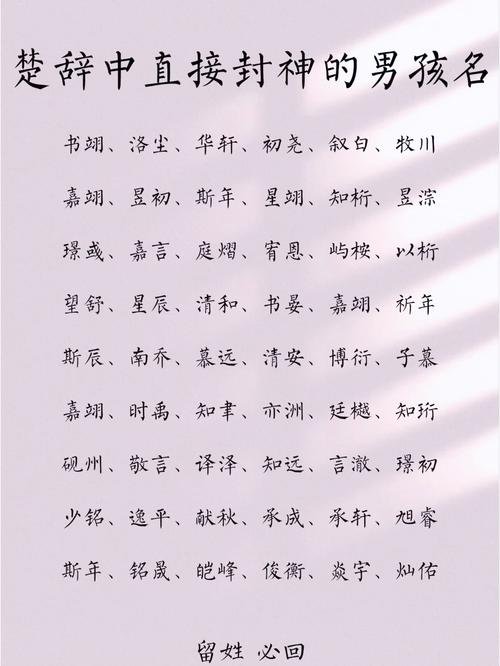 楚辞中直接封神的男孩名
书翊、洛尘、华轩、初尧、叙白、牧川
嘉翊、昱初、斯年、星翊、知桁、昱淙
璟彧、嘉言、庭熠、宥恩、屿桉、以桁
望舒、星辰、清和、书晏、嘉翊、祈年
斯辰、南乔、慕远、清安、博衍、子慕
嘉翊、时禹、知聿、亦洲、廷樾、知珩
砚州、敬言、译泽、知远、言澈、璟初
少铭、逸平、献秋、承成、承轩、旭睿
斯年、铭晟、皑峰、俊衡、焱宇、灿佑
留姓 必回